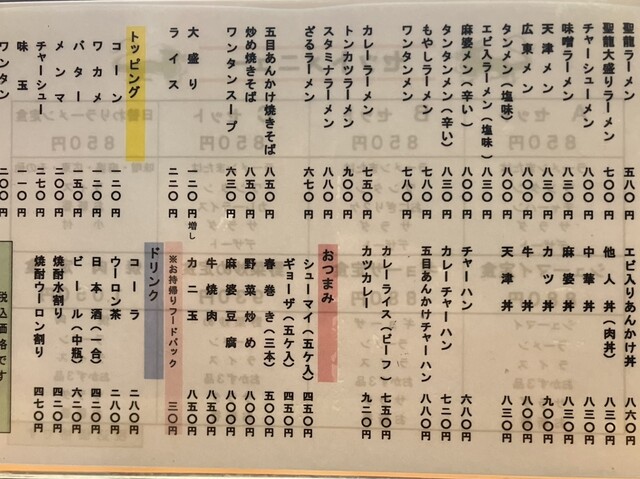 聖龍ラーメン 五八〇円
聖龍大盛りラーメン 七〇〇円
チャーシューメン 八三〇円
味噌ラーメン 八三〇円
天津メン 八三〇円
広東メン 八三〇円
タンメン(塩味) 七八〇円
エビ入ラーメン(塩味) 八三〇円
麻婆メン(辛い) 八三〇円
タンタンメン(辛い) 八三〇円
もやしラーメン 七八〇円
ワンタンメン 七八〇円
カレーラーメン 七五〇円
トンカツラーメン 九〇〇円
スタミナラーメン
ざるラーメン 六七〇円
五目あんかけ焼きそば 八五〇円
炒め焼きそば 八五〇円
ワンタンスープ 六三〇円
大盛り 一二〇円増し
ライス 二二〇円
トッピング
コーン 一二〇円
ワカメ 一二〇円
バター 一五〇円
メンマ 二〇〇円
チャーシュー 二七〇円
味玉 一一〇円
ワンタン 二〇〇円
エビ入りあんかけ丼 八六〇円
他人丼(肉丼) 八三〇円
中華丼 八三〇円
麻婆丼 八三〇円
カツ丼 九〇〇円
牛丼 八三〇円
天津丼 八三〇円
チャーハン 六八〇円
カレーチャーハン 七二〇円
五目あんかけチャーハン 八八〇円
カレーライス(ビーフ) 七五〇円
カツカレー 九二〇円
おつまみ
シューマイ(五ケ入) 四五〇円
ギョーザ(五ケ入) 四五〇円
春巻き(三本) 五〇〇円
野菜炒め 八〇〇円
麻婆豆腐 八〇〇円
牛焼肉 八五〇円
カニ玉 八五〇円
※お持帰りフードパック 三〇円
ドリンク
コーラ 二八〇円
ウーロン茶 二八〇円
日本酒(一合) 四二〇円
ビール(中瓶) 六二〇円
焼酎水割り 四二〇円
焼酎ウーロン割り 四七〇円
税込価格です